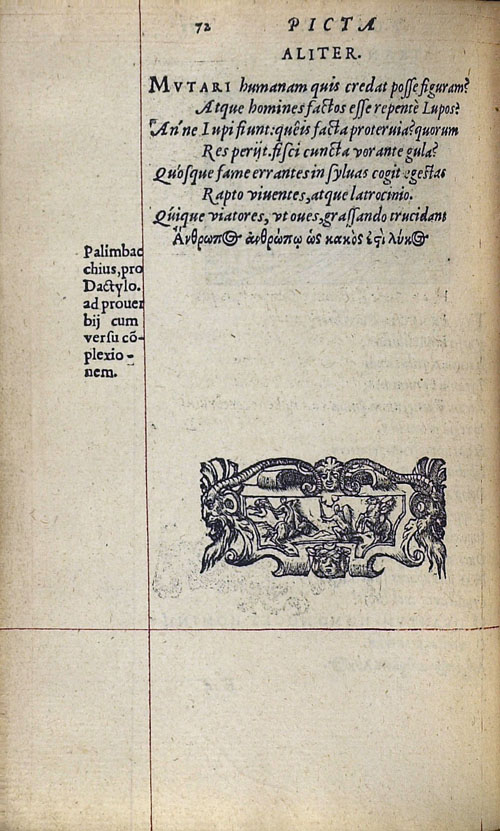 72 PICTA
ALITER.
MVTARI humanam quis credat posse figuram?
Atque homines factos esse repentè Lupos?
An'ne Lupi fiunt: quêis facta proteruia? quorum
Res perijt. fisci cuncta vorante gula?
Quósque fame errantes in syluas cogit egestas
Rapto viuentes, atque latrocinio.
Quíque viatores, vt oues, grassando trucidant
Ἄνθρωπος ἀνθρώπῳ ὡς κακὸς ἐςὶ λύκος
Palimbac
chius, pro
Dactylo.
ad prouer
bij cum
versu cō-
plexio-
nem.